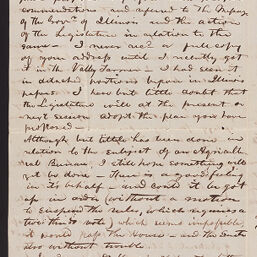 commendations and referred to the Message
of the Govr. of Illinois and the action
of the Legislature in relation to the
same — I never recd a full copy
of your address until I recently got
it in the Valley Farmer — I had seen it
in detached portions before in Illinois
papers. I have but little doubt that
the Legislature will at the present or
next session adopt the plan you have
proposed —
Although but little has been done in
relation to the subject of an Agricultu
ral Bureau, I still hope something will
yet be done — There is a good feeling
in its behalf — and could it be got
up in order (without a motion
to suspend the rules, which requires a
two thirds vote) which seems impossible,
it would pass the House — and the Senate
also without trouble